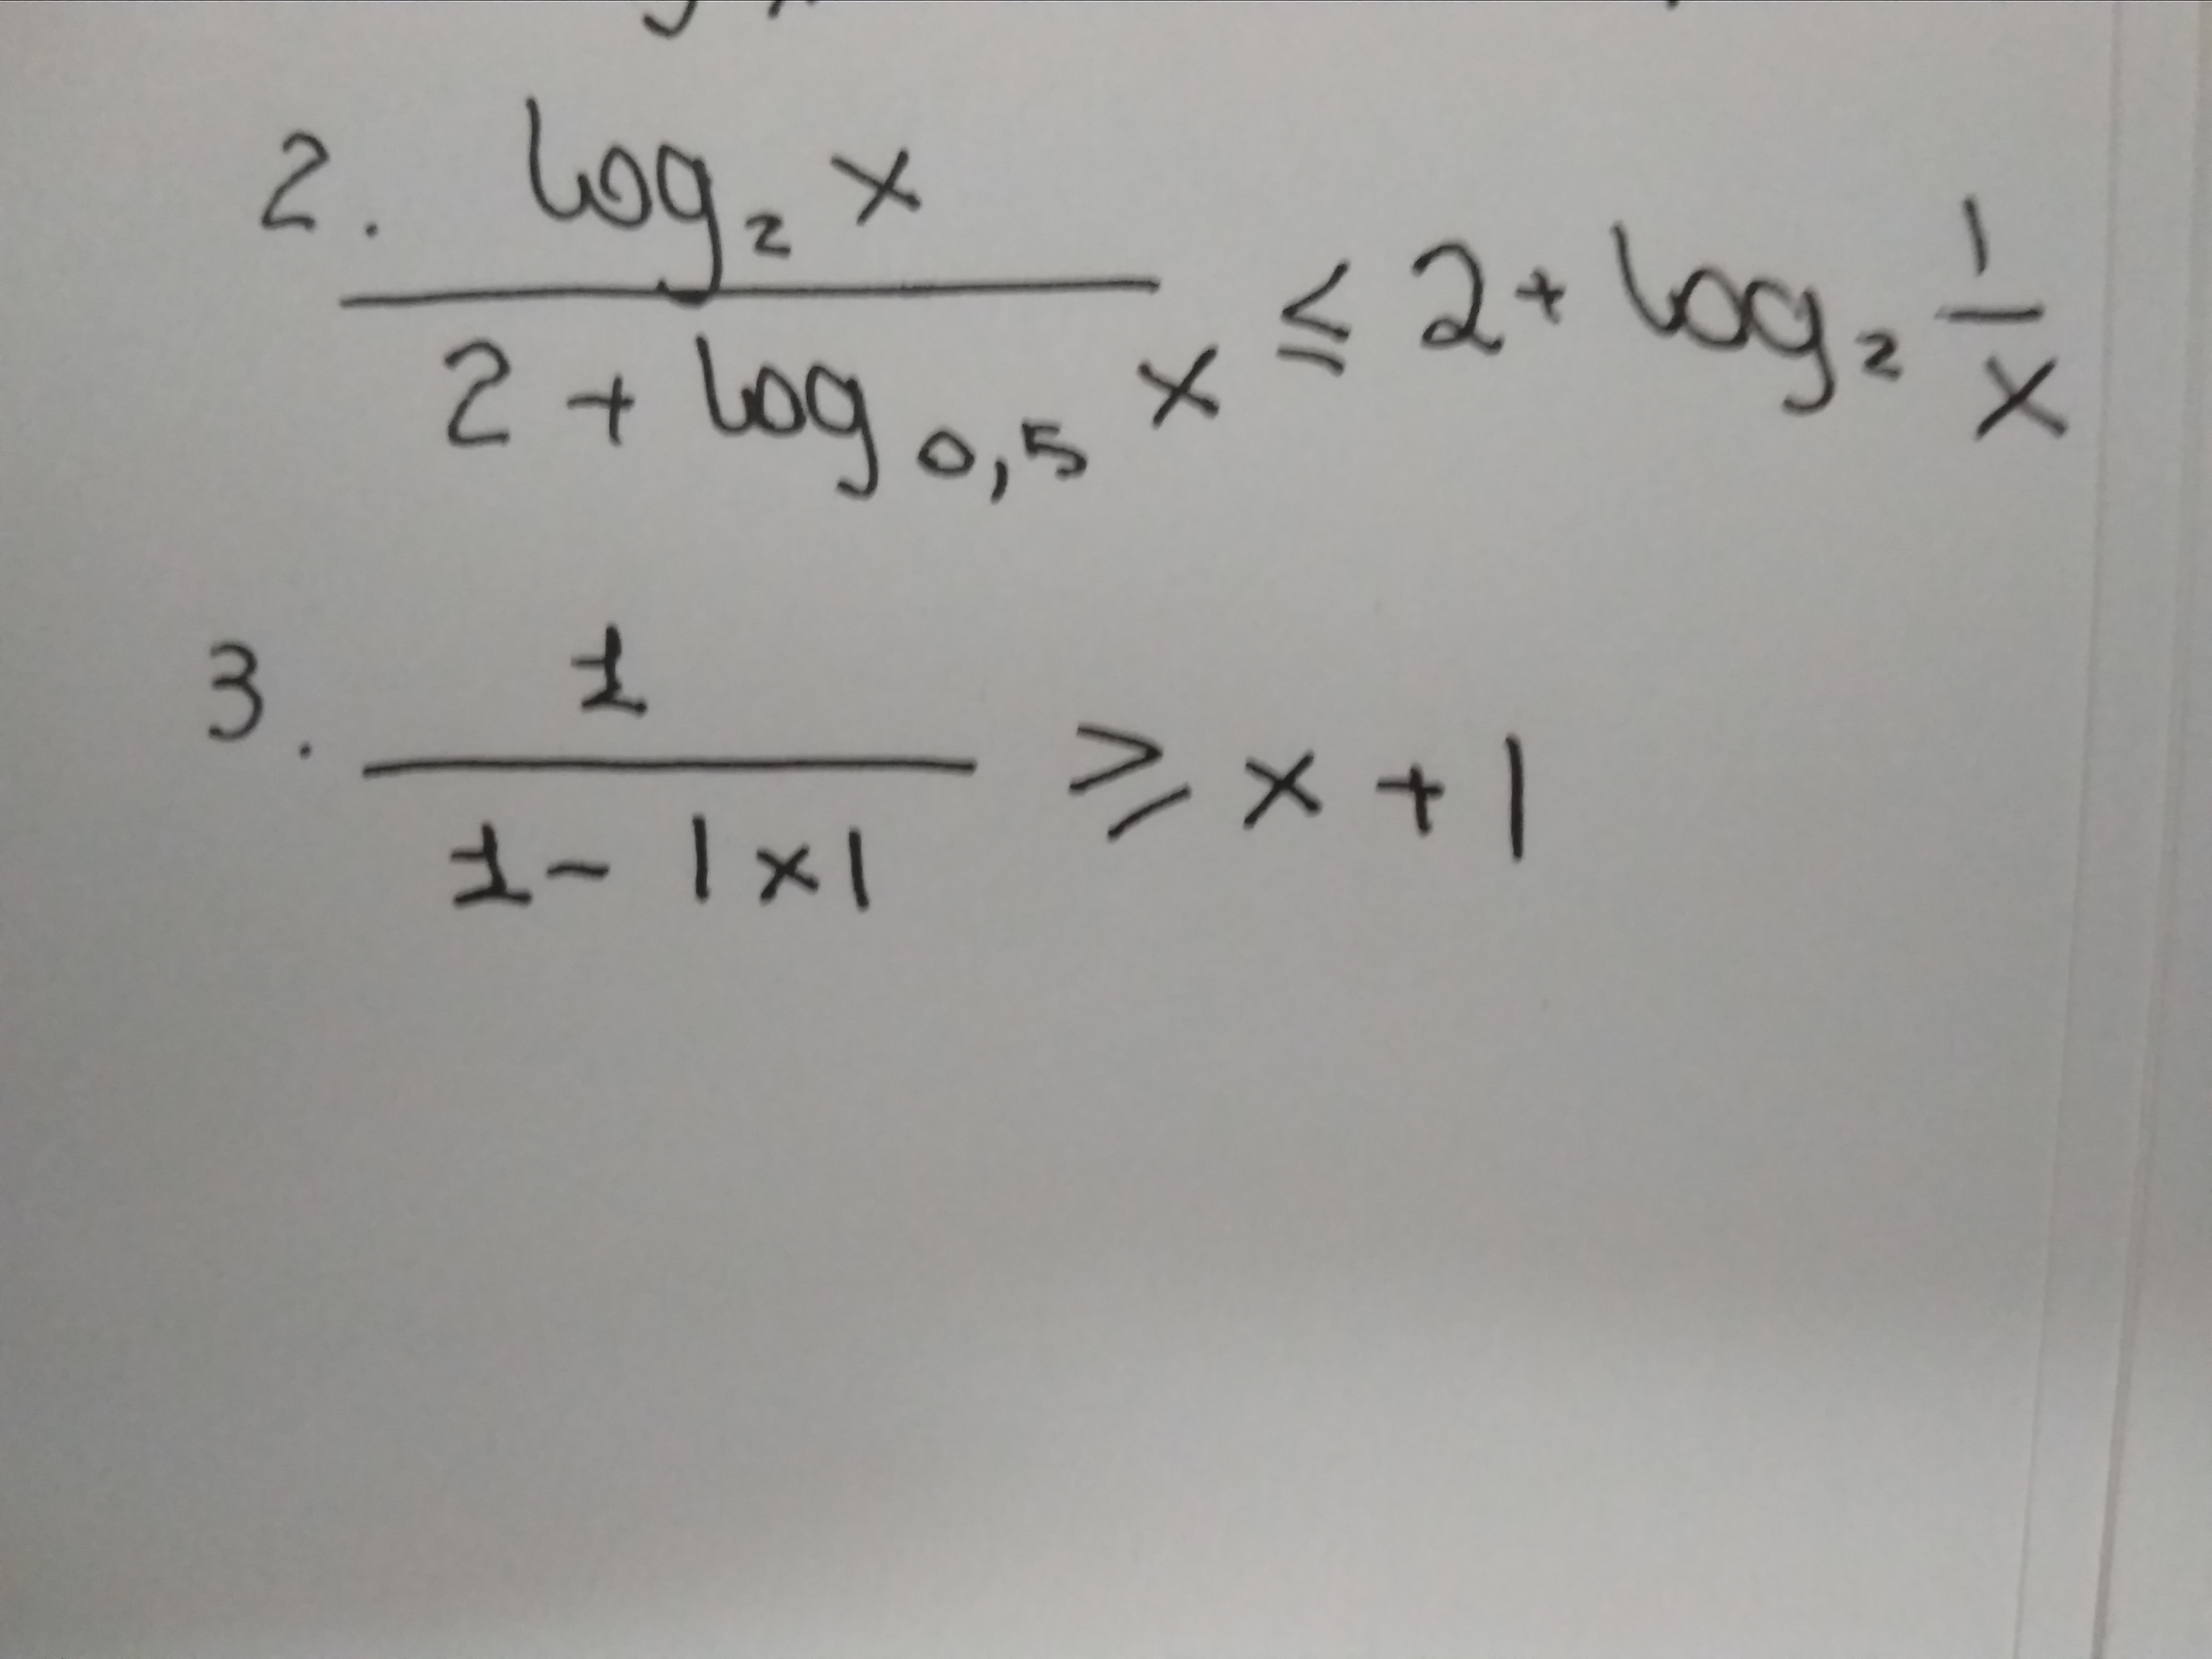 2. log₂ x / (2 + log₀,₅ x) ≤ 2 + log₂ 1/x
3. 1 / (1 - |x|) ⩾ x + 1